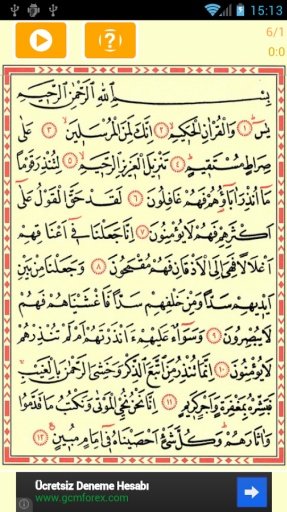 15:13
6/1
0:0
بِسْمِ اللهِ الرَّحْمٰنِ الرَّحِيمِ
يسٓ ﴿١﴾ وَالْقُرْاٰنِ الْحَكِيمِ ﴿٢﴾ اِنَّكَ لَمِنَ الْمُرْسَلِينَ ﴿٣﴾ عَلٰى
صِرَاطٍ مُسْتَقِيمٍ ﴿٤﴾ تَنْزِيلَ الْعَزِيزِ الرَّحِيمِ ﴿٥﴾ لِتُنْذِرَ قَوْمًا
مَٓا اُنْذِرَ اٰبَٓاؤُ۬هُمْ فَهُمْ غَافِلُونَ ﴿٦﴾ لَقَدْ حَقَّ الْقَوْلُ عَلٰٓى
اَكْثَرِهِمْ فَهُمْ لَا يُؤْمِنُونَ ﴿٧﴾ اِنَّا جَعَلْنَا فِٓي اَعْنَاقِهِمْ
اَغْلَالًا فَهِيَ اِلَى الْاَذْقَانِ فَهُمْ مُقْمَحُونَ ﴿٨﴾ وَجَعَلْنَا مِنْ بَيْنِ
اَيْدِيهِمْ سَدًّا وَمِنْ خَلْفِهِمْ سَدًّا فَاَغْشَيْنَاهُمْ فَهُمْ
لَا يُبْصِرُونَ ﴿٩﴾ وَسَوَٓاءٌ عَلَيْهِمْ ءَاَنْذَرْتَهُمْ اَمْ لَمْ تُنْذِرْهُمْ
لَا يُؤْمِنُونَ ﴿١٠﴾ اِنَّمَا تُنْذِرُ مَنِ اتَّبَعَ الذِّكْرَ وَخَشِيَ الرَّحْمٰنَ بِالْغَيْبِ
فَبَشِّرْهُ بِمَغْفِرَةٍ وَاَجْرٍ كَرِيمٍ ﴿١١﴾ اِنَّا نَحْنُ نُحْيِ الْمَوْتٰى وَنَكْتُبُ مَا قَدَّمُوا
وَاٰثَارَهُمْ وَكُلَّ شَيْءٍ اَحْصَيْنَاهُ فِٓي اِمَامٍ مُبِينٍ ﴿١٢﴾
Ücretsiz Deneme Hesabı
www.gcmforex.com